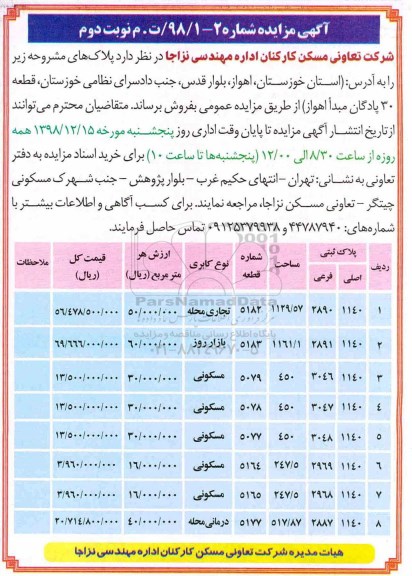 آگهی مزایده شماره ۲-۹۸/۱/ت.م نوبت دوم
شرکت تعاونی مسکن کارکنان اداره مهندسی نزاجا در نظر دارد پلاک‌های مشروحه زیر
را به آدرس: (استان خوزستان، اهواز، بلوار قدس، جنب دادسرای نظامی خوزستان، قطعه
۳۰ پادگان مبدأ اهواز) از طریق مزایده عمومی بفروش برساند. متقاضیان محترم می‌توانند
از تاریخ انتشار آگهی مزایده تا پایان وقت اداری روز پنجشنبه مورخه ۱۳۹۸/۱۲/۱۵ همه
روزه از ساعت ۸/۳۰ الی ۱۲/۰۰ (پنجشنبه‌ها تا ساعت ۱۰) برای خرید اسناد مزایده به دفتر
تعاونی به نشانی: تهران - انتهای حکیم غرب - بلوار پژوهش - جنب شهرک مسکونی
چیتگر - تعاونی مسکن نزاجا، مراجعه نمایند. برای کسب آگاهی و اطلاعات بیشتر با
شماره‌های: ۴۴۷۸۷۹۴۰ و ۰۹۱۲۵۳۷۹۹۳۸ تماس حاصل فرمایند.
ردیف پلاک ثبتی مساحت شماره قطعه نوع کاربری ارزش هر متر مربع (ریال) قیمت کل (ریال) ملاحظات
اصلی فرعی
۱ ۱۱۴۰ ۲۸۹۰ ۱۱۲۹/۵۷ ۵۱۸۲ تجاری محله ۵۰/۰۰۰/۰۰۰ ۵۶/۴۷۸/۵۰۰/۰۰۰
۲ ۱۱۴۰ ۲۸۹۱ ۱۱۶۱/۱ ۵۱۸۳ بازار روز ۶۰/۰۰۰/۰۰۰ ۶۹/۶۶۶/۰۰۰/۰۰۰
۳ ۱۱۴۰ ۳۰۴۶ ۴۵۰ ۵۰۷۹ مسکونی ۳۰/۰۰۰/۰۰۰ ۱۳/۵۰۰/۰۰۰/۰۰۰
۴ ۱۱۴۰ ۳۰۴۷ ۴۵۰ ۵۰۷۸ مسکونی ۳۰/۰۰۰/۰۰۰ ۱۳/۵۰۰/۰۰۰/۰۰۰
۵ ۱۱۴۰ ۳۰۴۸ ۴۵۰ ۵۰۷۷ مسکونی ۳۰/۰۰۰/۰۰۰ ۱۳/۵۰۰/۰۰۰/۰۰۰
۶ ۱۱۴۰ ۲۹۶۹ ۲۴۷/۵ ۵۱۶۴ مسکونی ۱۶/۰۰۰/۰۰۰ ۳/۹۶۰/۰۰۰/۰۰۰
۷ ۱۱۴۰ ۲۹۶۸ ۲۴۷/۵ ۵۱۶۵ مسکونی ۱۶/۰۰۰/۰۰۰ ۳/۹۶۰/۰۰۰/۰۰۰
۸ ۱۱۴۰ ۲۸۸۷ ۵۱۷/۸۷ ۵۱۷۷ درمانی محله ۴۰/۰۰۰/۰۰۰ ۲۰/۷۱۴/۸۰۰/۰۰۰
ParsNamadData
پایگاه اطلاع رسانی مناقصه و مزایده
۰۲۱-۸۸۳۴۹۶۷۰-۵
هیات مدیره شرکت تعاونی مسکن کارکنان اداره مهندسی نزاجا